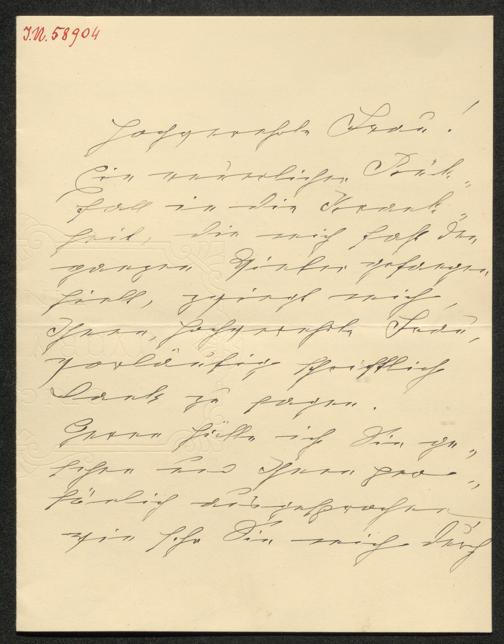 I.N. 58904
Hochverehrte Frau!
Ein neuerlicher Rück-
fall in die Krank-
heit, die mich fast den
ganzen Winter gefangen
hielt, zwingt mich,
Ihnen, hochverehrte Frau,
vorläufig schriftlich
Dank zu sagen.
Gerne hätte ich Sie ge-
sehen und Ihnen per-
sönlich ausgesprochen
wie sehr Sie mich durch